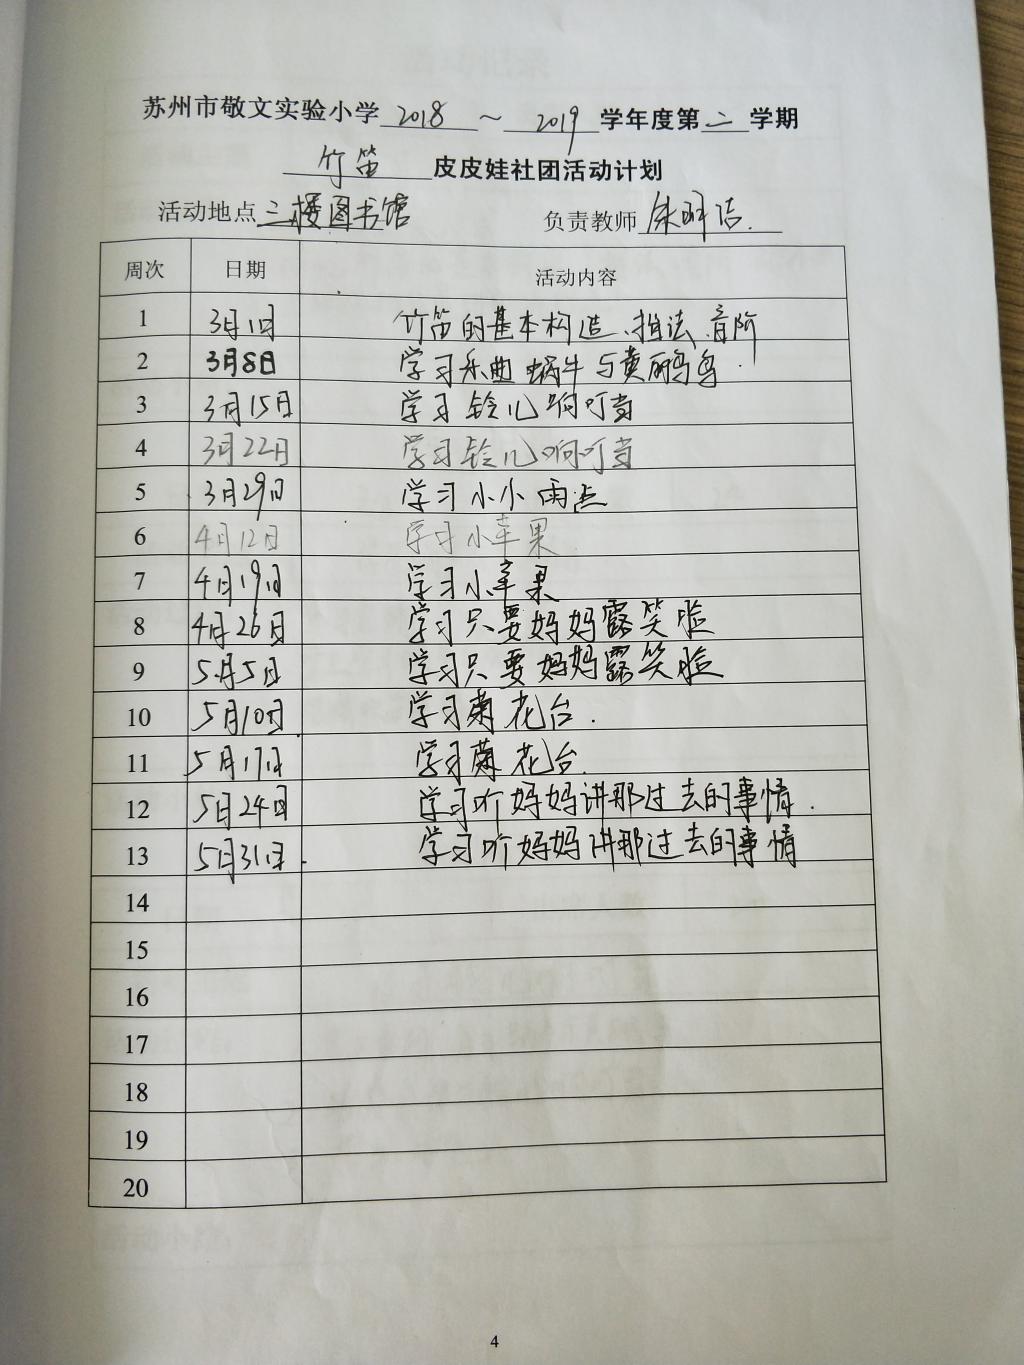 苏州市敬文实验小学 2018 ~ 2019 学年度第 二 学期
竹笛 皮皮娃社团活动计划
活动地点 三楼图书馆 负责教师
周次 日期 活动内容
1 3月1日 竹笛的基本构造、指法、音阶
2 3月8日 学习乐曲 蜗牛与黄鹂鸟.
3 3月15日 学习铃儿响叮当
4 3月22日 学习铃儿响叮当
5 3月29日 学习小小雨点
6 4月12日 学习小苹果
7 4月19日 学习小苹果
8 4月26日 学习只要妈妈露笑脸
9 5月5日 学习只要妈妈露笑脸
10 5月10日 学习菊花台.
11 5月17日 学习菊花台.
12 5月24日 学习听妈妈讲那过去的事情.
13 5月31日. 学习听妈妈讲那过去的事情
14
15
16
17
18
19
20
4